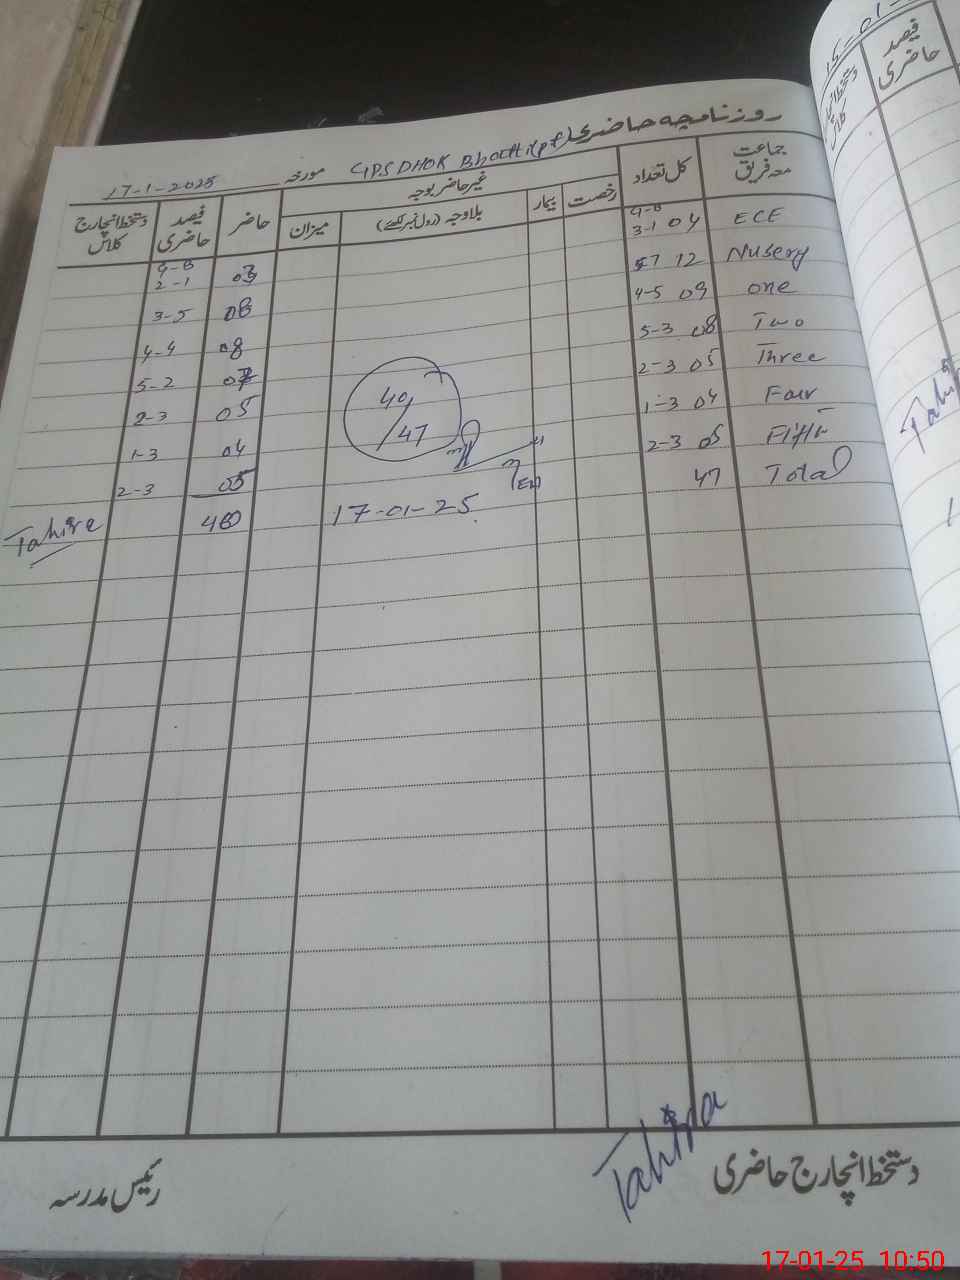 روزنامچہ حاضری GPS DHOK Bhatti(pf) مورخہ 17-1-2025
جماعت معہ فریق کل تعداد غیر حاضر بوجہ حاضر فیصد حاضری دستخط انچارج کلاس
رخصت بیمار بلاوجہ (رول نمبر لکھئے) میزان
G-B G-B
ECE 04 3-1 03 2-1
Nusery 12 57 08 3-5
one 09 4-5 08 4-4
Two 08 5-3 07 5-2
Three 05 2-3 05 2-3
Four 04 1-3 04 1-3
Fifth 05 2-3 05 2-3
Total 47 40
40/47
17-01-25
Tahira
Tahira
دستخط انچارج حاضری رئیس مدرسہ
فیصد حاضری
17-01-25 10:50